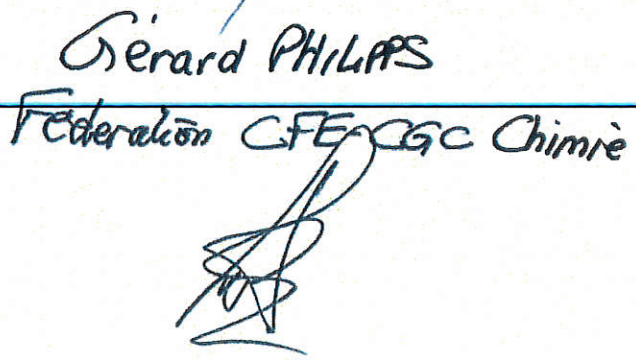 Gérard PHILIPPS
Fédération CFE-CGC Chimie